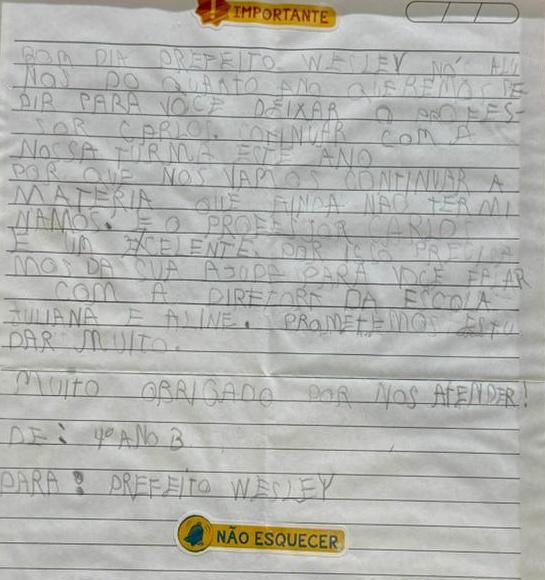 IMPORTANTE
BOM DIA PREFEITO WESLEY NÓS ALU
NOS DO QUARTO ANO QUEREMOS PE
DIR PARA VOCE DEIXAR O PROFES-
SOR CARLOS. CONTINUAR COM A
NOSSA TURMA ESTE ANO
POR QUE NOS VAMOS CONTINUAR A
MATERIA QUE AINDA NÃO TERMI
NAMOS. E O PROFESSOR CARLOS
É UM EXCELENTE. POR ISSO PRECISA
MOS DA SUA AJUDA PARA VOCE FALAR
COM A DIRETORA DA ESCOLA
JULIANA E ALINE. PROMETEMOS ESTU
DAR MUITO.
MUITO OBRIGADO POR NOS ATENDER!
DE: 4º ANO B
PARA: PREFEITO WESLEY
NÃO ESQUECER